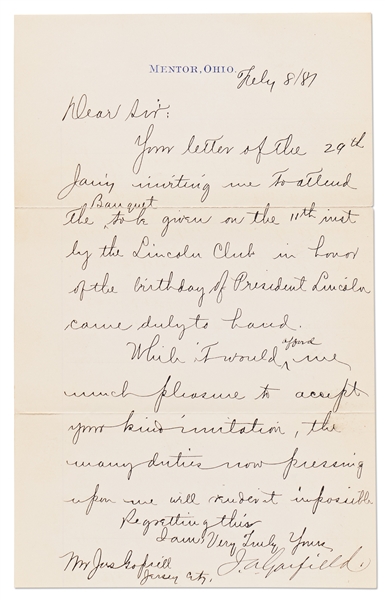 MENTOR, OHIO.
Feby 8/81
Dear Sir:
Your letter of the 29th
Jany inviting me to attend
Banquet
the, to be given on the 11th inst
by the Lincoln Club in honor
of the birthday of President Lincoln
came duly to hand.
afford
While it would me
much pleasure to accept
your kind invitation, the
many duties now pressing
upon me will render it impossible
Regretting this
I am Very Truly Yours,
J. A. Garfield.
Mr Jas
Jersey City.